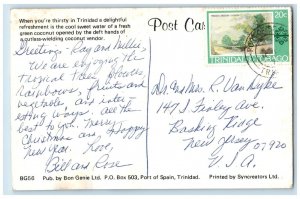 When you're thirsty in Trinidad a delightful
refreshment is the cool sweet water of a fresh
green coconut opened by the deft hands of
a cutlass-wielding coconut vendor.
Post Car
20c
TRINIDAD & TOBAGO
Greetings - Ray and Millie,
We are enjoying the
tropical trees, flowers,
rainbows, fruits and
vegetable, and inter-
esting ways. All the
best to you. Merry
Christmas and Happy
New Year. Love,
Bill and Rose
Dr. and Mrs. R. Van Dyke
147 S. Finley Ave.
Basking Ridge
New Jersey
07920
U.S.A.
BG56 Pub. by Bon Genie Ltd. P.O. Box 503, Port of Spain, Trinidad. Printed by Syncreators Ltd.